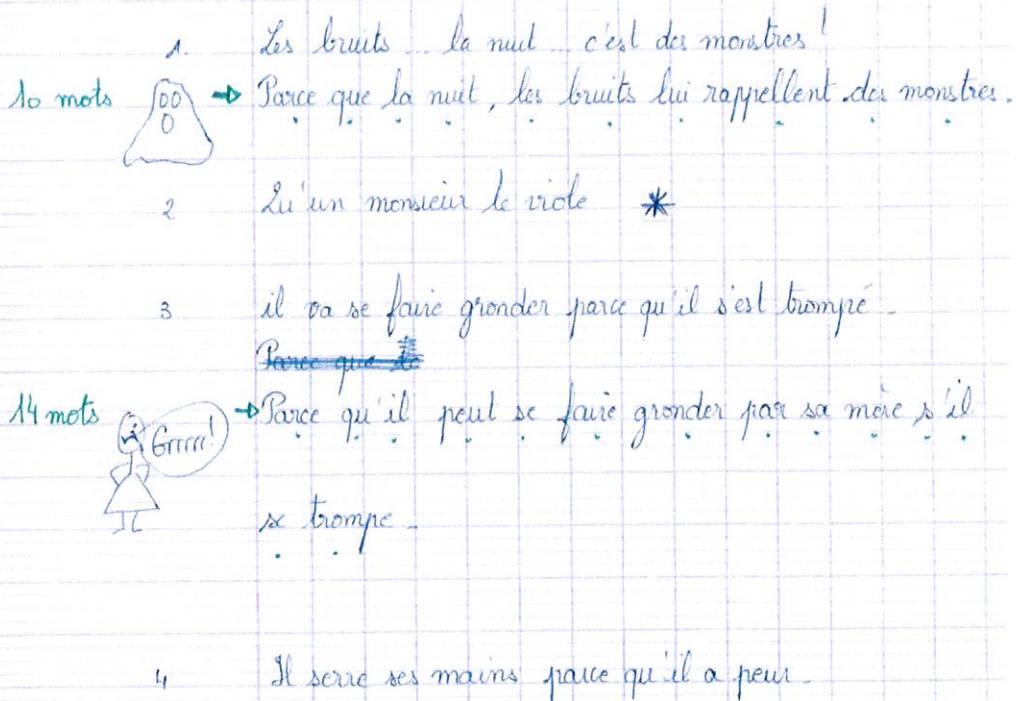 1. Les bruits... la nuit... c'est des monstres!
10 mots → Parce que la nuit, les bruits lui rappellent des monstres.
2 Qu'un monsieur le viole *
3 il va se faire gronder parce qu'il s'est trompé.
Parce que le
14 mots Grrrrr! → Parce qu'il peut se faire gronder par sa mère s'il
se trompe.
4 Il serre ses mains parce qu'il a peur.